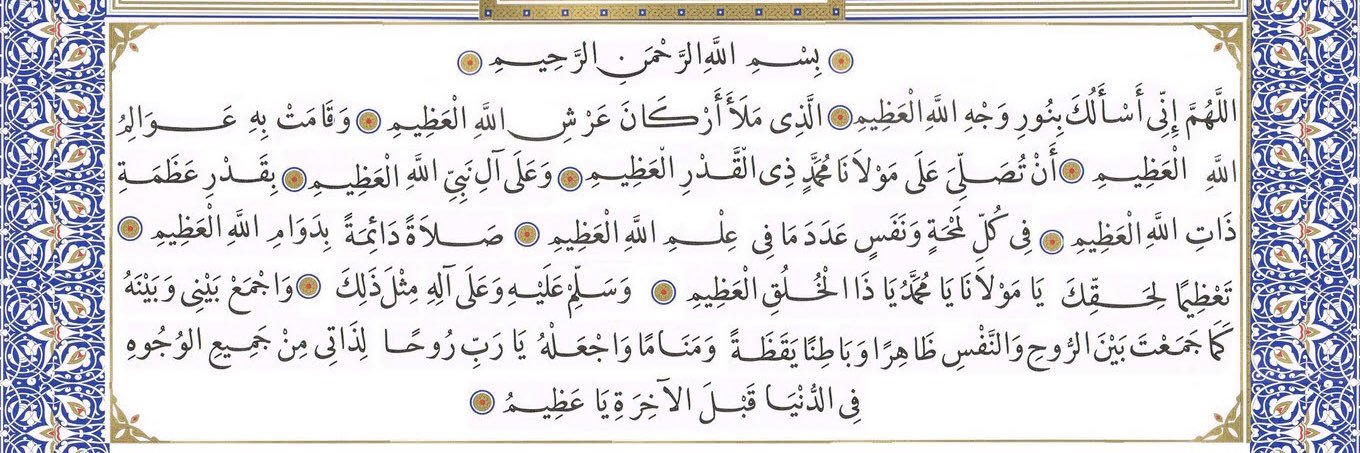 بِسْمِ اللَّهِ الرَّحْمَنِ الرَّحِيمِ
اللَّهُمَّ إِنِّي أَسْأَلُكَ بِنُورِ وَجْهِ اللَّهِ الْعَظِيمِ الَّذِى مَلَأَ أَرْكَانَ عَرْشِ اللَّهِ الْعَظِيمِ وَقَامَتْ بِهِ عَوَالِمُ
اللَّهِ الْعَظِيمِ أَنْ تُصَلِّيَ عَلَى مَوْلَانَا مُحَمَّدٍ ذِى الْقَدْرِ الْعَظِيمِ وَعَلَى آلِ نَبِيِّ اللَّهِ الْعَظِيمِ بِقَدْرِ عَظَمَةِ
ذَاتِ اللَّهِ الْعَظِيمِ فِى كُلِّ لَمْحَةٍ وَنَفَسٍ عَدَدَ مَا فِى عِلْمِ اللَّهِ الْعَظِيمِ صَلَاةً دَائِمَةً بِدَوَامِ اللَّهِ الْعَظِيمِ
تَعْظِيمًا لِحَقِّكَ يَا مَوْلَانَا يَا مُحَمَّدُ يَا ذَا الْخُلُقِ الْعَظِيمِ وَسَلِّمْ عَلَيْهِ وَعَلَى آلِهِ مِثْلَ ذَلِكَ وَاجْمَعْ بَيْنِى وَبَيْنَهُ
كَمَا جَمَعْتَ بَيْنَ الرُّوحِ وَالنَّفْسِ ظَاهِرًا وَبَاطِنًا يَقَظَةً وَمَنَامًا وَاجْعَلْهُ يَا رَبِّ رُوحًا لِذَاتِى مِنْ جَمِيعِ الْوُجُوهِ
فِى الدُّنْيَا قَبْلَ الْآخِرَةِ يَا عَظِيمُ